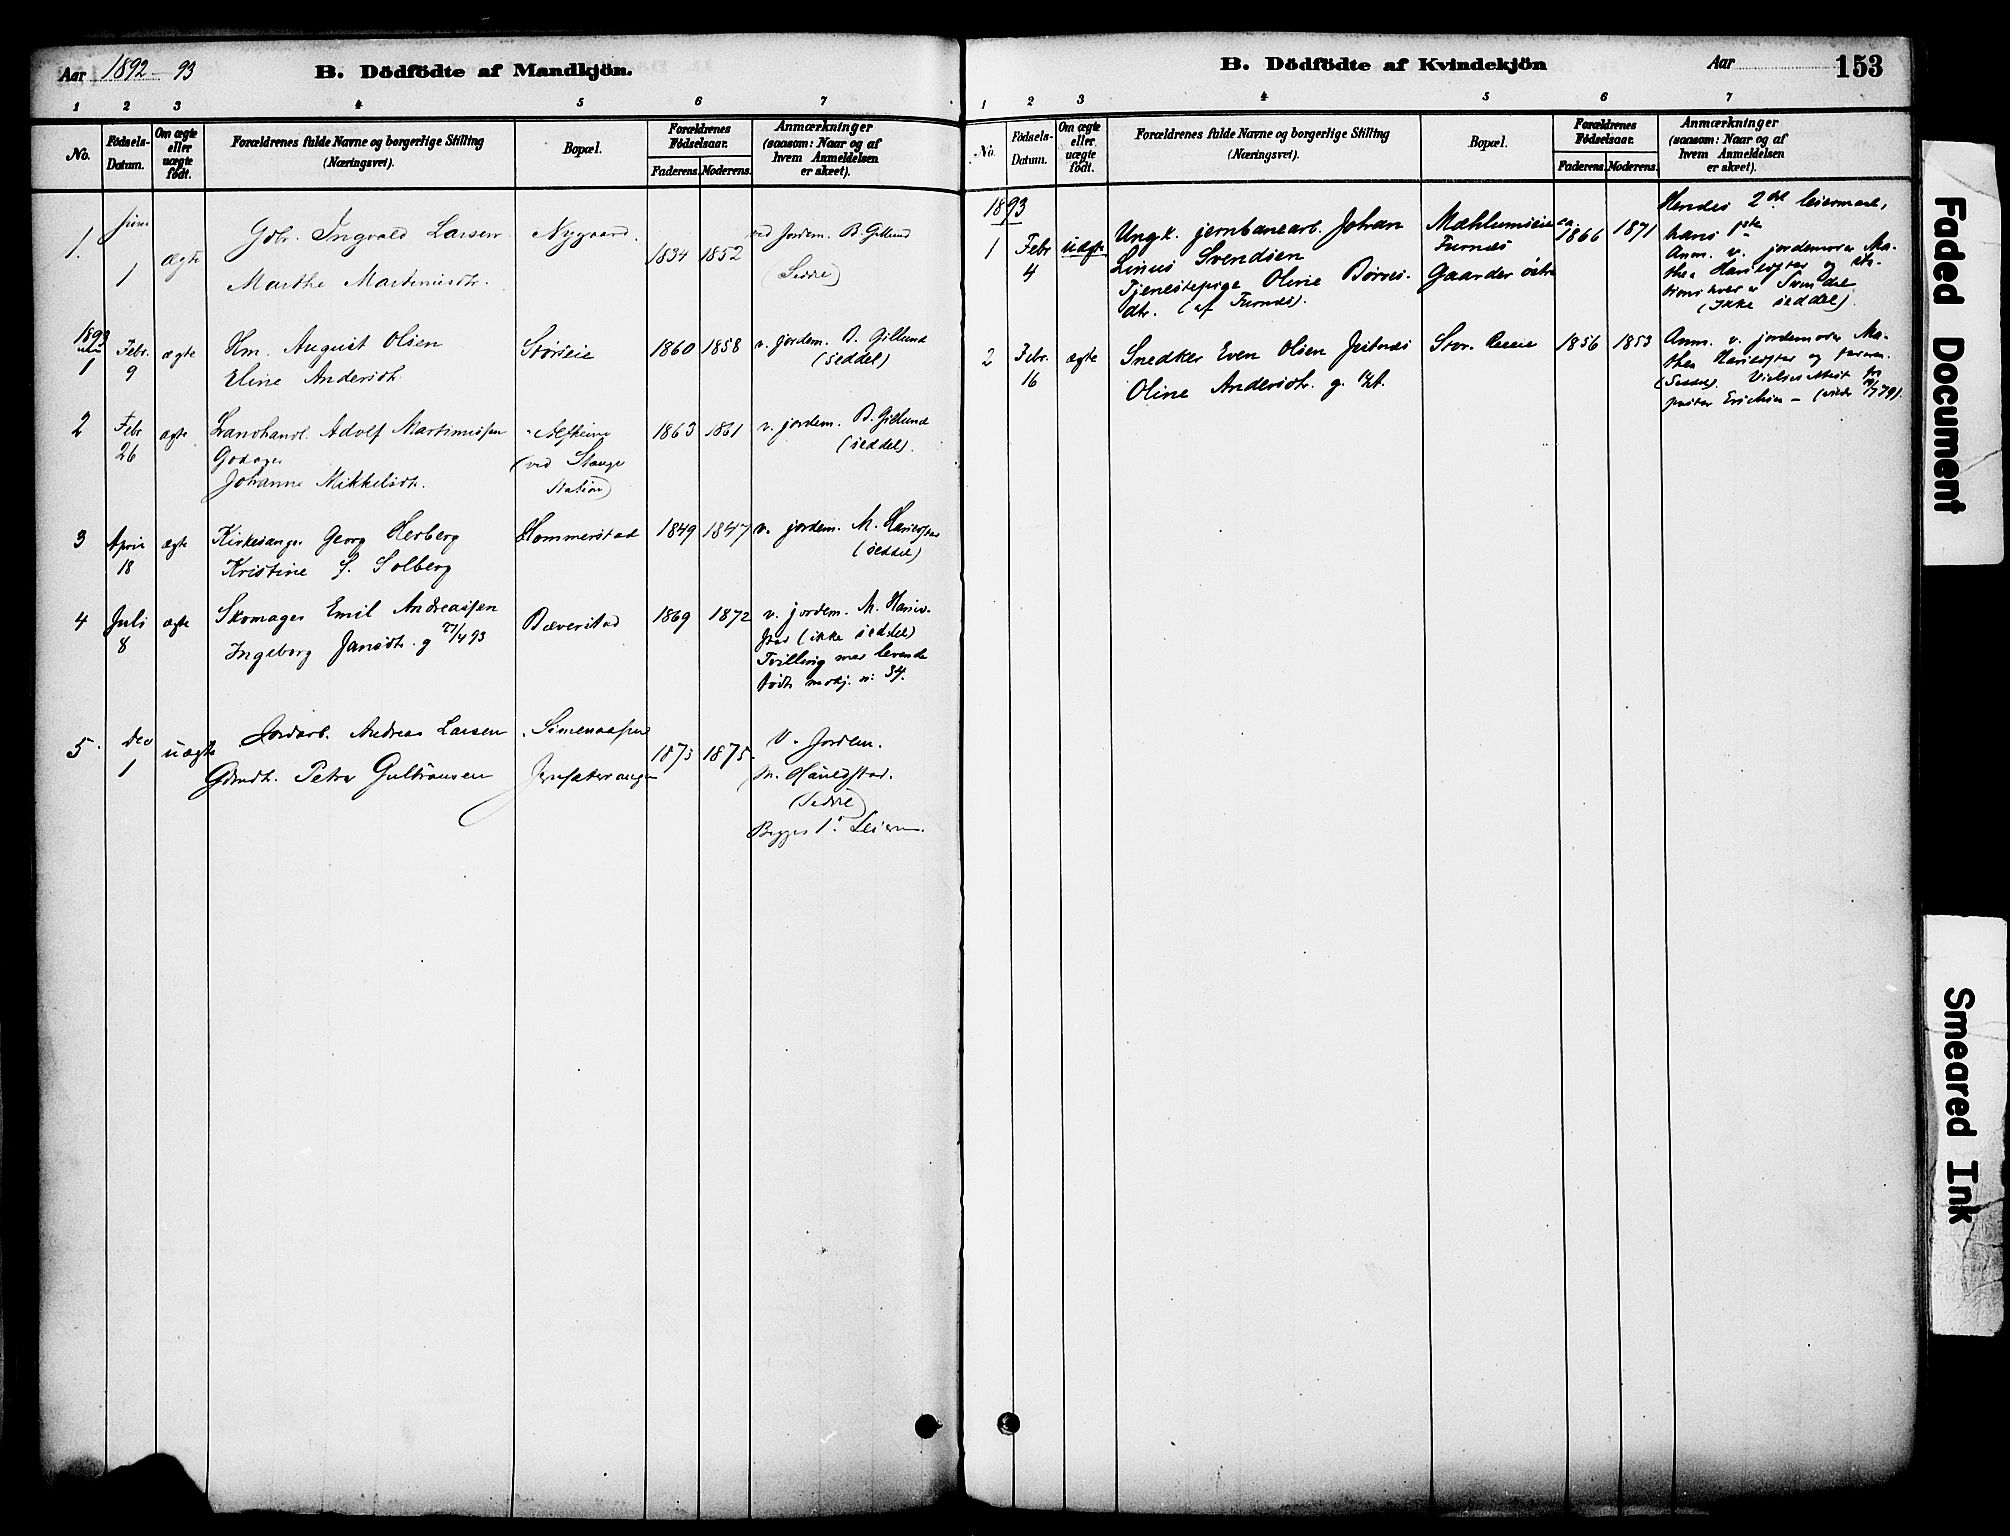 Aar 1892-93
B. Dödfödte af Mandkjön.
1 2 3 4 5 6 7
No.
Födsels-Datum.
Om ægte eller uægte födt.
Forældrenes fulde Navne og borgerlige Stilling (Næringsvei).
Bopæl.
Forældrenes Födselsaar.
Faderens. Moderens.
Anmærkninger (saasom: Naar og af hvem Anmeldelsen er skeet).
1. juni 1 ægte
Gbr. Ingvald Larsen
Marthe Martinusdtr.
Nygaard.
1834 1852
ved Jordem. B. Gillund
(Seddel)
1893
1 Febr. 9 ægte
Hm. August Olsen
Eline Andersdtr.
Störseie
1860 1858
v. jordem. B. Gillund
(seddel)
2 Febr 26 ægte
Landhandl. Adolf Martinussen
Godager
Johanne Mikkelsdtr.
Alfheim
(ved Stange
Station)
1863 1861
v. jordem. B. Gillund
(seddel).
3 April 18 ægte
Kirkesanger Georg Herberg
Kristine S. Solberg
Hommerstad
1849 1847
v. jordem. M. Harildstad
(seddel)
4 Juli 8 ægte
Skomager Emil Andreassen
Ingeborg Jansdtr. g 27/4 93
Bæverstad
1869 1872
v. jordem. M. Harild-
stad (ikke seddel)
Tvilling med levende
födt mdkj. n: 34.
5. Dec 1 uægte
Jordarb. Andreas Larsen
Gbrdtr. Petra Gulbransen
Simenaasen
1873 1875
V. Jordem.
M. Harildstad.
(Seddel)
Begges 1ste Leierm.
B. Dödfödte af Kvindekjön
Aar
153
1 2 3 4 5 6 7
No.
Födsels-Datum.
Om ægte eller uægte födt.
Forældrenes fulde Navne og borgerlige Stilling (Næringsvei).
Bopæl.
Forældrenes Födselsaar.
Faderens. Moderens.
Anmærkninger (saasom: Naar og af hvem Anmeldelsen er skeet).
1893
1 Febr 4 uægte
Ungk. jernbanearb. Johan
Linus Svendsen
Tjenestepige Oline Börres-
dtr. (af Furnes).
Mæhlumseie
Furnes
Gaarder östre
ca. 1866 1871
Hendes 2det leiermaal,
hans 1ste
Anm. v. jordemoder Ma-
thea Harildstad og
Svendse
(ikke seddel).
2 Febr. 16 ægte
Snedker Even Olsen
Oline Andersdtr. g.
Stor
1856 1853
Anm. v. jordemoder Ma-
thea Harildstad og faderen.
(Seddel). Vielsesattest fra
pastor Erichsen
Faded Document
Smeared Ink